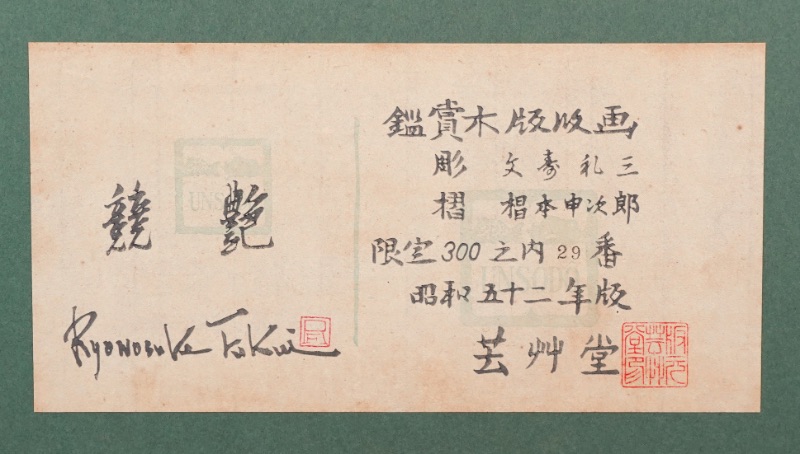 競艶
Ryonosuke Fukui
鑑賞木版版画
彫 文寿礼三
摺 椙本申次郎
限定300之内29番
昭和五十二年版
芸艸堂
版元芸艸堂印
UNSODO